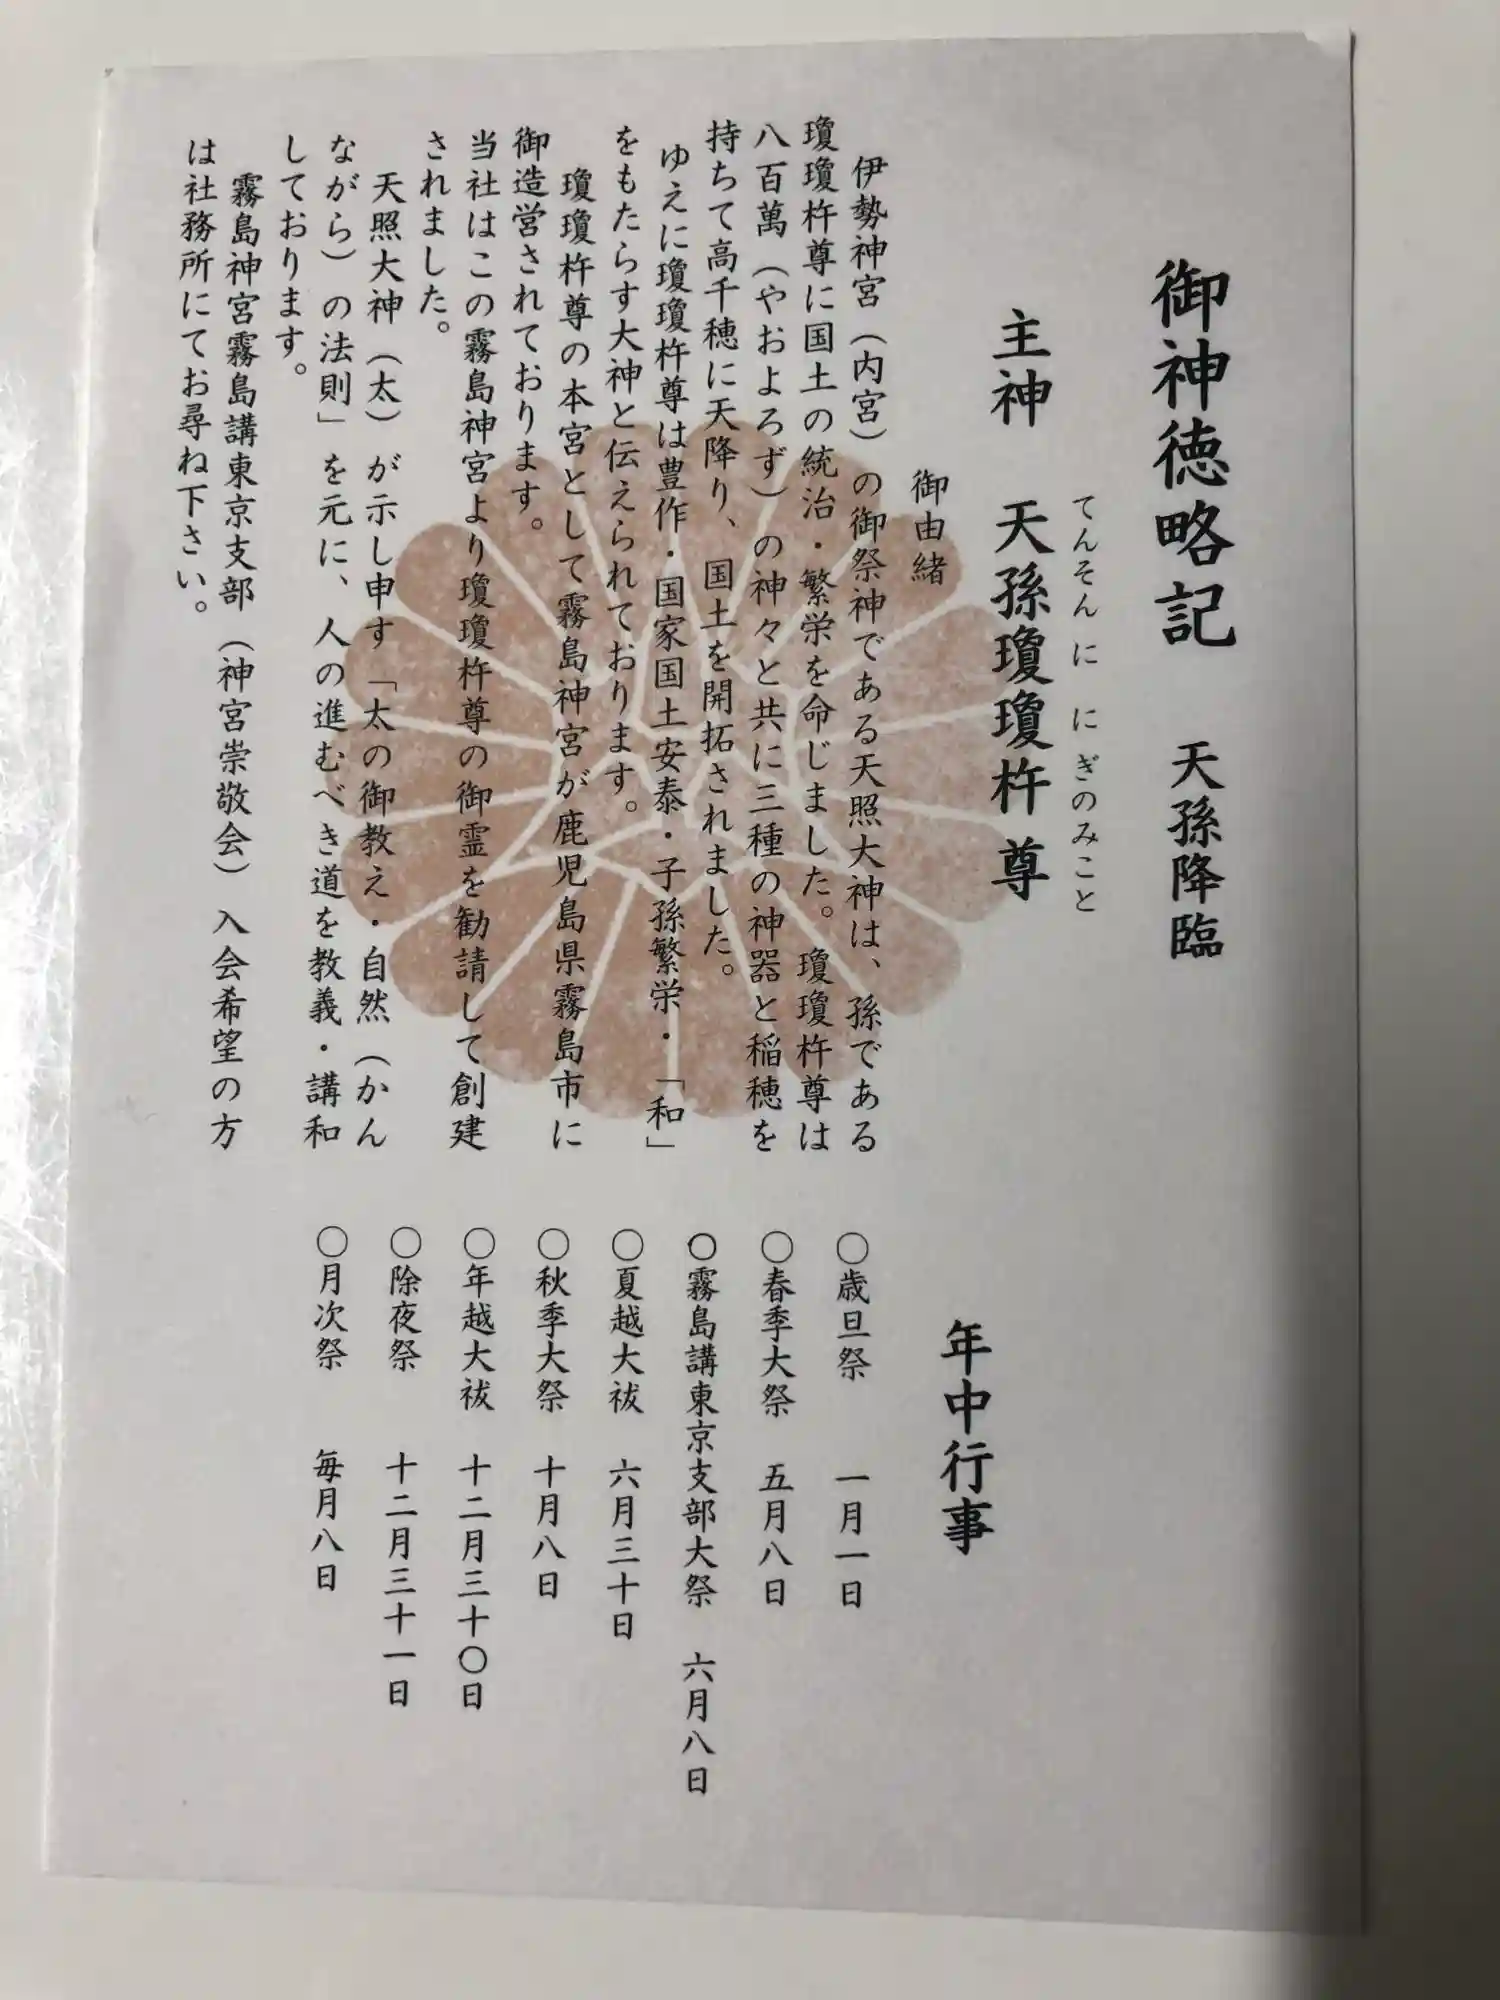 御神徳略記　天孫降臨
てんそん に にぎのみこと
主神　天孫瓊瓊杵尊
御由緒
伊勢神宮（内宮）の御祭神である天照大神は、孫である
瓊瓊杵尊に国土の統治・繁栄を命じました。瓊瓊杵尊は
八百萬（やおよろず）の神々と共に三種の神器と稲穂を
持ちて高千穂に天降り、国土を開拓されました。
ゆえに瓊瓊杵尊は豊作・国家国土安泰・子孫繁栄・「和」
をもたらす大神と伝えられております。
瓊瓊杵尊の本宮として霧島神宮が鹿児島県霧島市に
御造営されております。
当社はこの霧島神宮より瓊瓊杵尊の御霊を勧請して創建
されました。
天照大神（太）が示し申す「太の御教え・自然（かん
ながら）の法則」を元に、人の進むべき道を教義・講和
しております。
霧島神宮霧島講東京支部（神宮崇敬会）入会希望の方
は社務所にてお尋ね下さい。
年中行事
〇歳旦祭　一月一日
〇春季大祭　五月八日
〇霧島講東京支部大祭　六月八日
〇夏越大祓　六月三十日
〇秋季大祭　十月八日
〇年越大祓　十二月三十〇日
〇除夜祭　十二月三十一日
〇月次祭　毎月八日